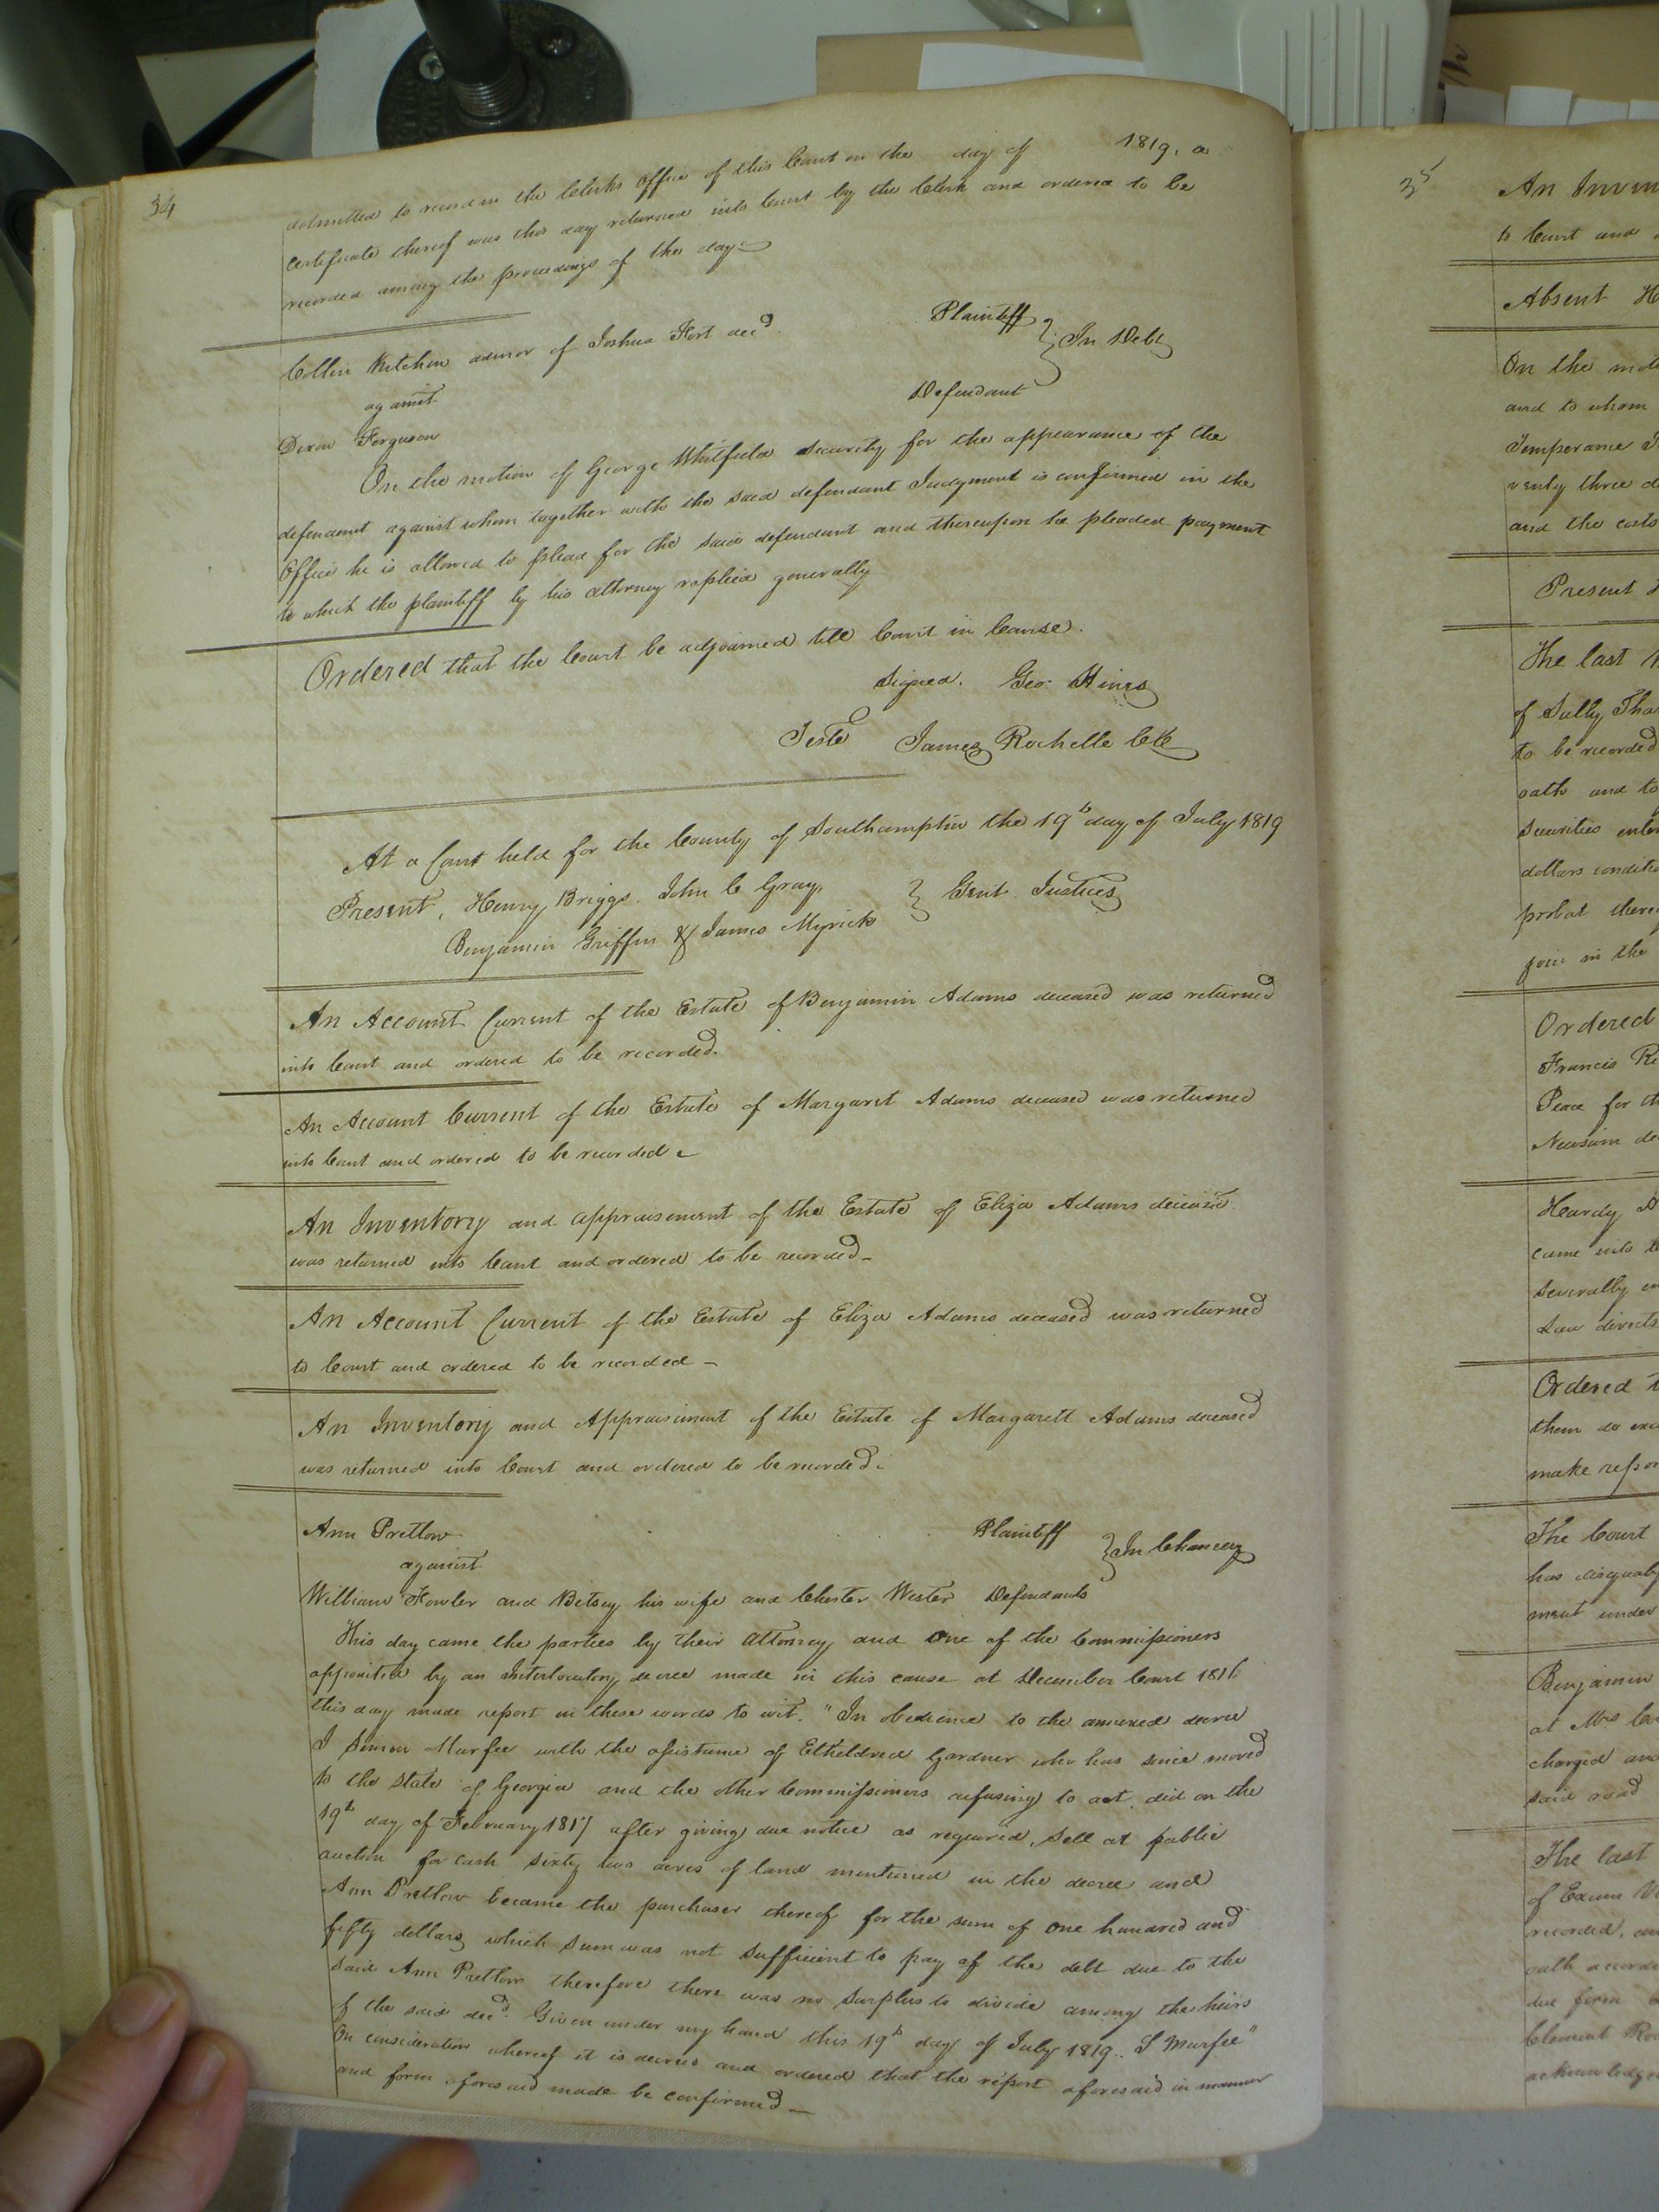 34
admitted to record in the Clerks Office of this Court on the day of 1819, a
certificate thereof was this day returned into Court by the Clerk and ordered to be
recorded among the proceedings of the day
Collin Kitchen admor of Joshua Fort decd. Plaintiff
against In Debt
Dixon Ferguson Defendant
On the motion of George Whitfield security for the appearance of the
defendant against whom together with the said defendant Judgment is confirmed in the
Office he is allowed to plead for the said defendant and thereupon he pleaded payment
to which the plaintiff by his attorney replied generally
Ordered that the Court be adjourned till Court in Course.
Signed. Geo. Hines
Teste James Rochelle Clk
At a Court held for the County of Southampton the 19th day of July 1819
Present, Henry Briggs. John C Gray, Gent. Justices
Benjamin Griffin & James Myrick
An Account Current of the Estate of Benjamin Adams deceased was returned
into Court and ordered to be recorded.
An Account Current of the Estate of Margaret Adams deceased was returned
into Court and ordered to be recorded
An Inventory and appraisement of the Estate of Eliza Adams deceasd.
was returned into Court and ordered to be recorded
An Account Current of the Estate of Eliza Adams deceased was returned
to Court and ordered to be recorded
An Inventory and Appraisiment of the Estate of Margarett Adams deceased
was returned into Court and ordered to be recorded.
Ann Pretlow Plaintiff
against In Chancery
William Fowler and Betsey his wife and Chester Wester Defendants
This day came the parties by their attorney and one of the Commissioners
appointed by an Interlocutory decree made in this cause at December Court 1816
this day made report in these words to wit. "In obedience to the annexed decree
I Simon Murfee with the assistance of Etheldred Gardner who has since moved
to the State of Georgia and the other Commissioners refusing to act, did on the
19th day of February 1817 after giving due notice as required, sell at public
auction for cash sixty two acres of land mentioned in the decree and
Ann Pretlow became the purchaser thereof for the sum of one hundred and
fifty dollars which sum was not sufficient to pay of the debt due to the
said Ann Pretlow therefore there was no surplus to divide among the heirs
of the said decd. Given under my hand this 19th day of July 1819.. S Murfee"
On consideration whereof it is decreed and ordered that the report aforesaid in manner
and form aforesaid made be confirmed
35
An Inven
to Court and
Absent H
On the moti
and to whom
Temperance
venty three d
and the costs
Present
The last
of Sally Tha
to be recorded
oath and to
securities enter
dollars conditi
probat there
join in the
Ordered
Francis Ri
Peace for th
Newsum de
Hardy
came into
severally
Law directs
Ordered t
them do exa
make repor
The Court
has disqual
ment under
Benjamin
at Mrs
charged and
said road
The last
of Exum
recorded, an
oath accordi
due form
Clement Ro
acknowledge